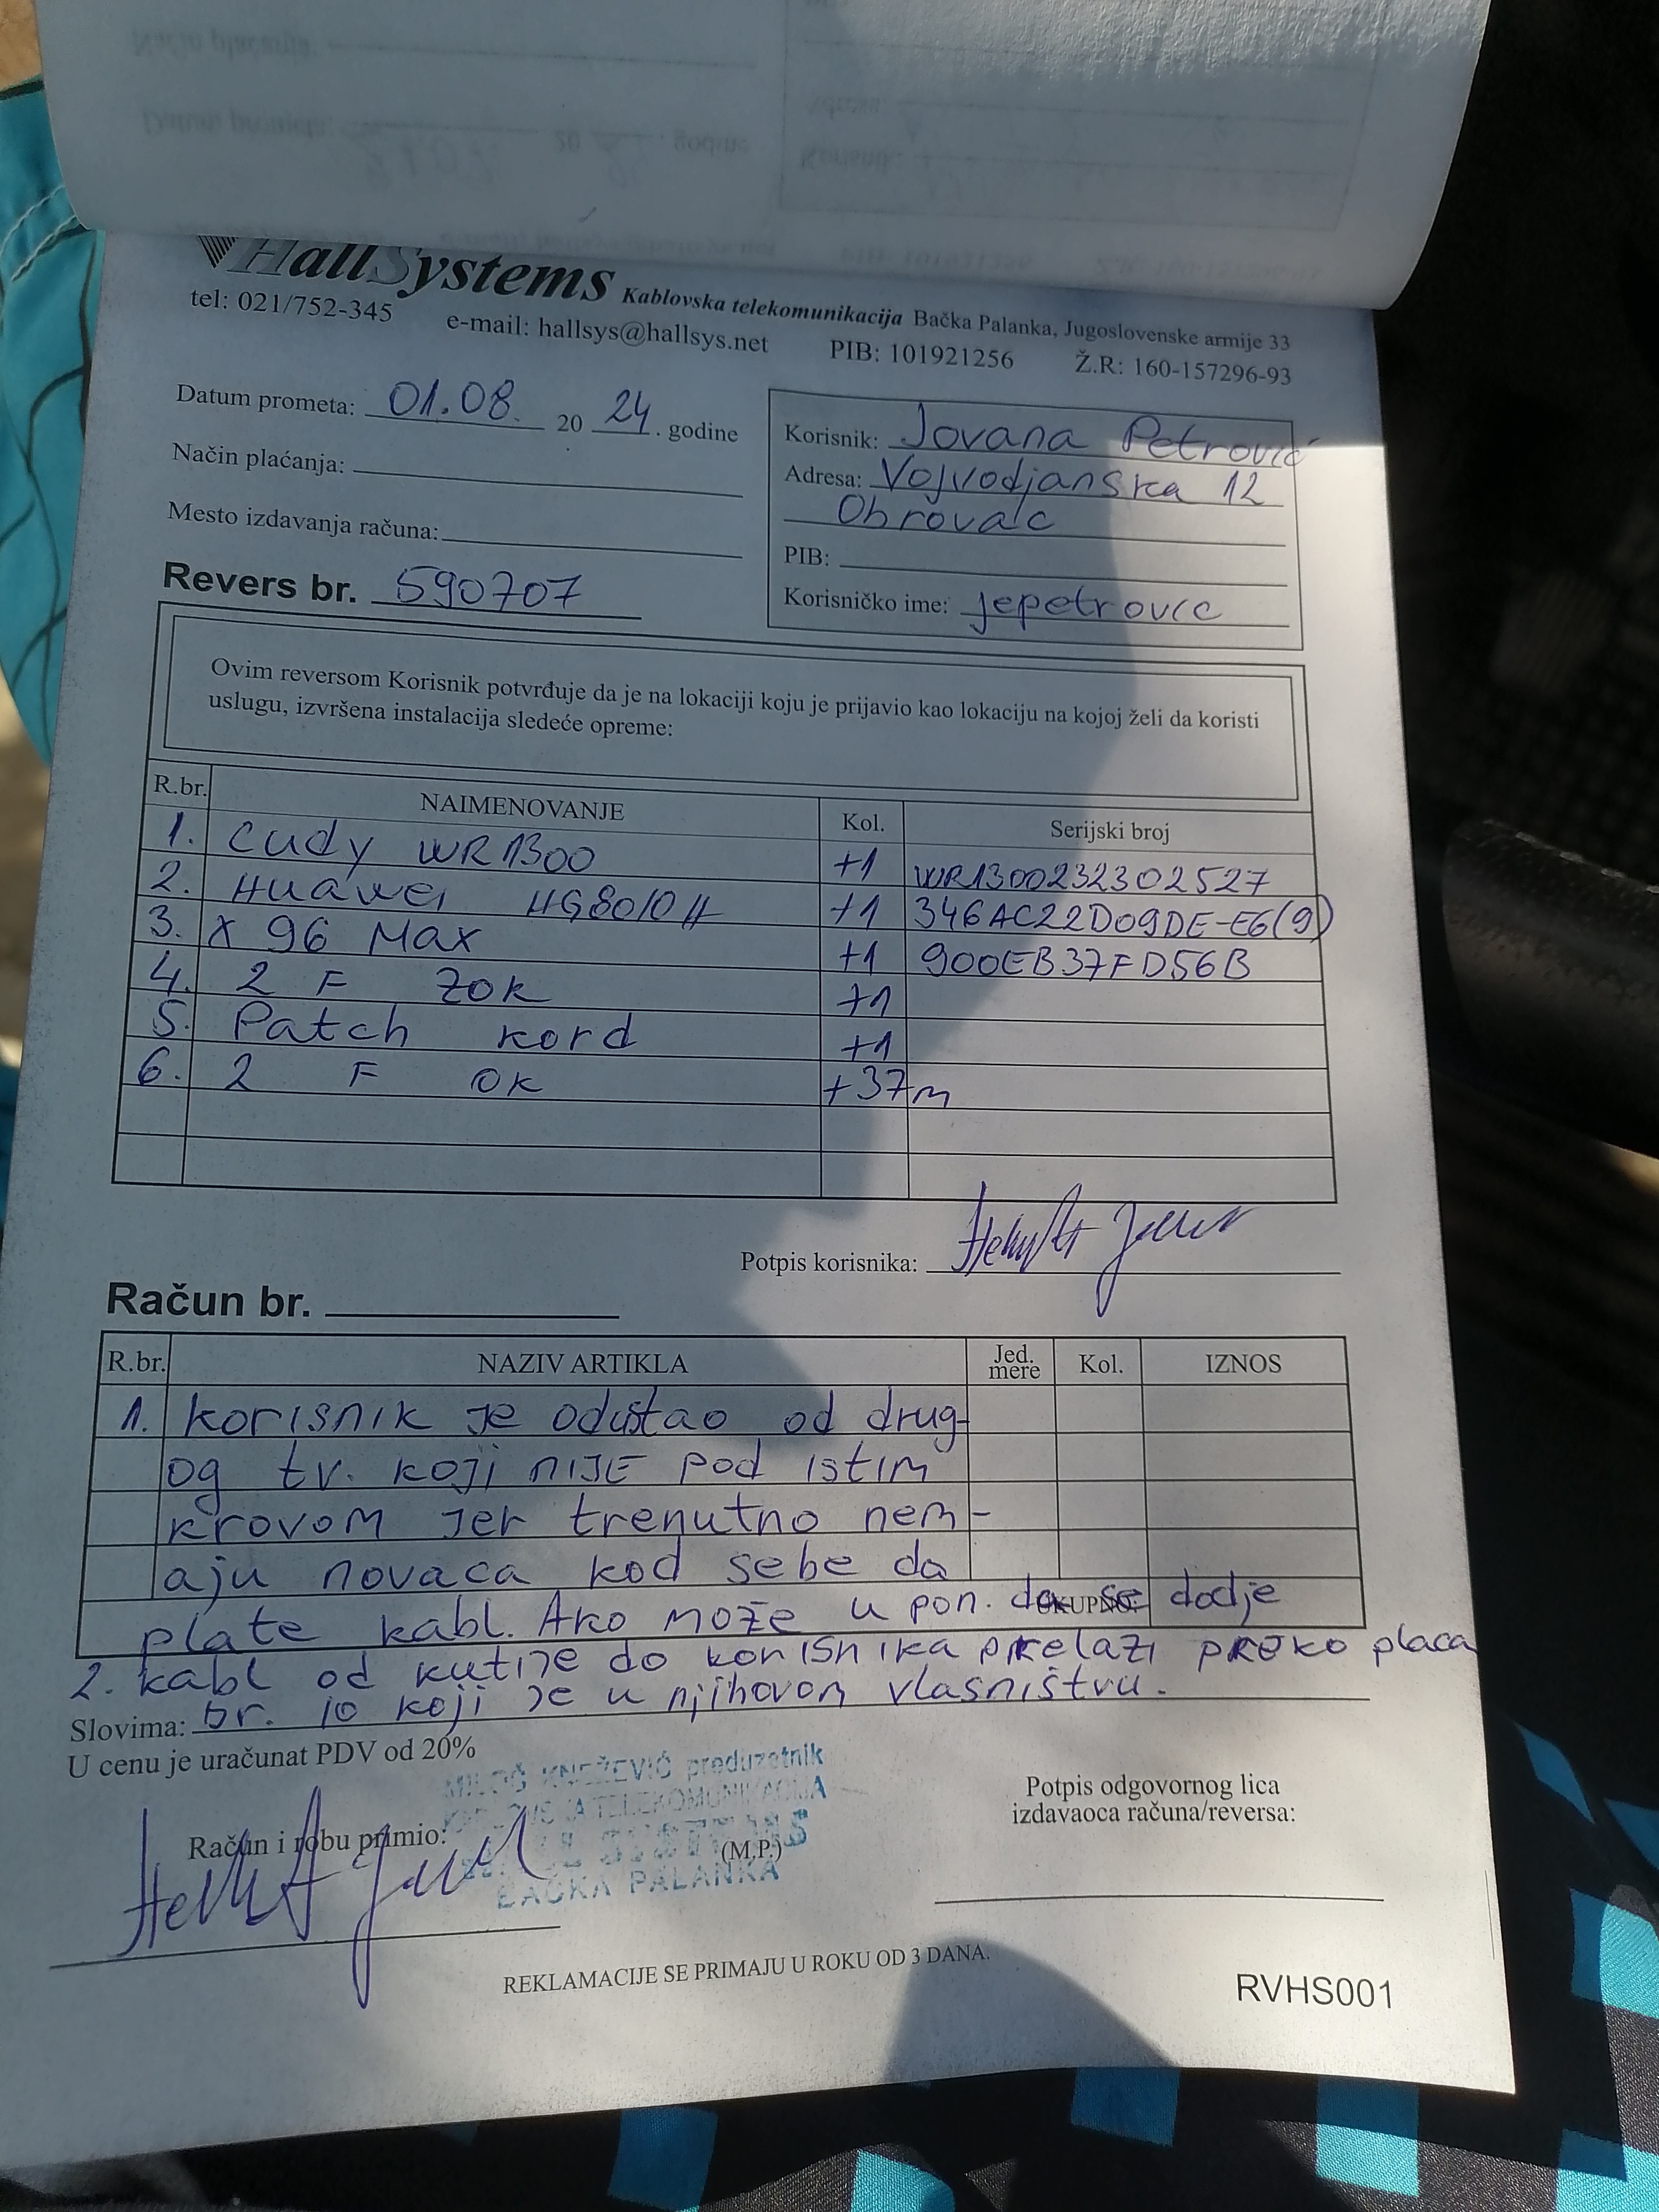 HallSystems Kablovska telekomunikacija Bačka Palanka, Jugoslovenske armije 33
tel: 021/752-345 e-mail: hallsys@hallsys.net PIB: 101921256 Ž.R: 160-157296-93
Datum prometa: 01.08. 20 24. godine
Način plaćanja:
Mesto izdavanja računa:
Revers br. 590707
Korisnik: Jovana Petrović
Adresa: Vojvodjanska 12
Obrovac
PIB:
Korisničko ime: jepetrovic
Ovim reversom Korisnik potvrđuje da je na lokaciji koju je prijavio kao lokaciju na kojoj želi da koristi
uslugu, izvršena instalacija sledeće opreme:
R.br. NAIMENOVANJE Kol. Serijski broj
1. Cudy WR1300 +1 WR1300232302527
2. Huawei HG8010H +1 346AC22D09DE-E6(9)
3. X 96 Max +1 900EB37FD56B
4. 2 F ZOK +1
5. Patch kord +1
6. 2 F OK +37m
Potpis korisnika:
Račun br.
R.br. NAZIV ARTIKLA Jed. mere Kol. IZNOS
1. korisnik je odustao od drug-
og tv. koji nije pod istim
krovom jer trenutno nem-
aju novaca kod sebe da
plate kabl. Ako može u pon. da se dodje
UKUPNO:
2. kabl od kutije do korisnika prelazi preko placa
Slovima: br. 10 koji je u njihovom vlasništvu.
U cenu je uračunat PDV od 20%
MILOŠ KNEŽEVIĆ preduzetnik
KABLOVSKA TELEKOMUNIKACIJA
BAČKA PALANKA
Račun i robu primio:
(M.P.)
Potpis odgovornog lica
izdavaoca računa/reversa:
REKLAMACIJE SE PRIMAJU U ROKU OD 3 DANA.
RVHS001